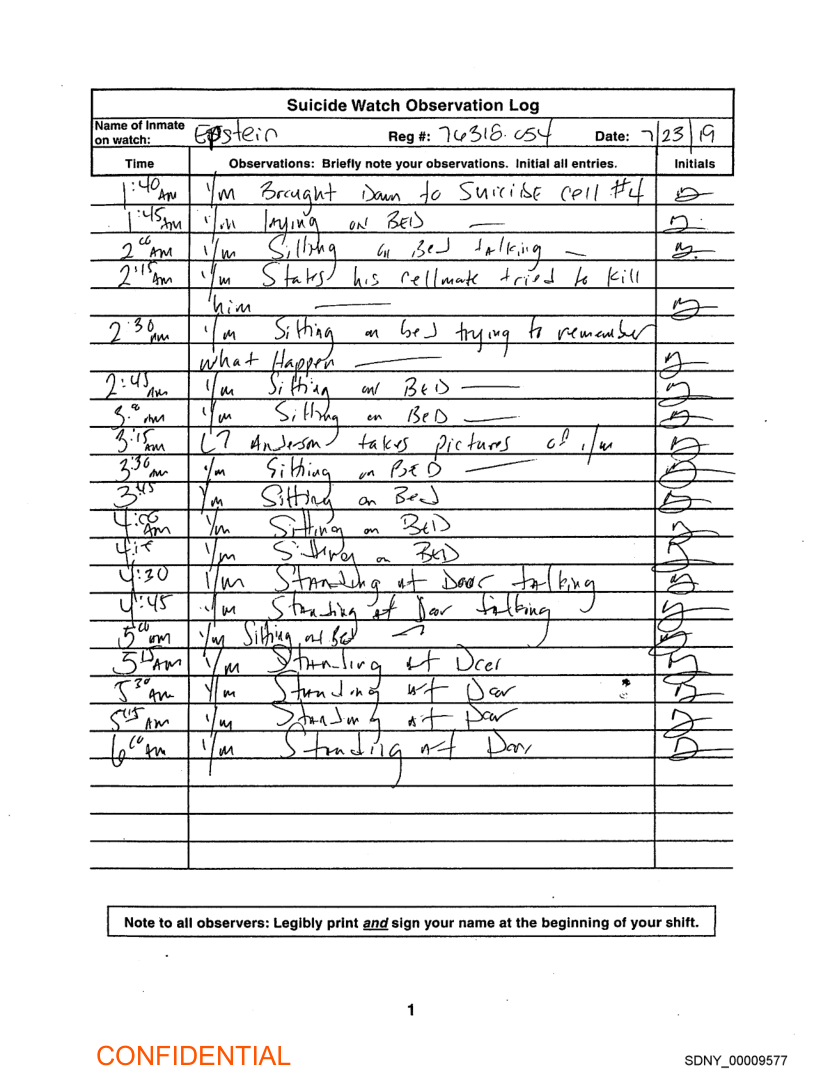 Suicide Watch Observation Log
Name of Inmate on watch: Epstein Reg #: 76318-054 Date: 7/23/19
Time Observations: Briefly note your observations. Initial all entries. Initials
1:40 AM I/m Brought Down to Suicide cell #4
1:45 AM I/m laying on BED
2:00 AM I/m Sitting on Bed talking
2:15 AM I/m States his cellmate tried to kill
him
2:30 AM I/m Sitting on bed trying to remember
what Happen
2:45 AM I/m Sitting on BED
3:00 AM I/m Sitting on BED
3:15 AM LT Anderson takes pictures of I/m
3:30 AM I/m Sitting on BED
3:45 I/m Sitting on Bed
4:00 AM I/m Sitting on BED
I/m Sitting on BED
4:30 I/m Standing at Door talking
4:45 I/m Standing at Door talking
5:00 am I/m Sitting on BED
5:15 AM I/m Standing at Door
5:30 AM I/m Standing at Door
AM I/m Standing at Door
6:00 AM I/m Standing at Door
Note to all observers: Legibly print and sign your name at the beginning of your shift.
1
CONFIDENTIAL
SDNY_00009577